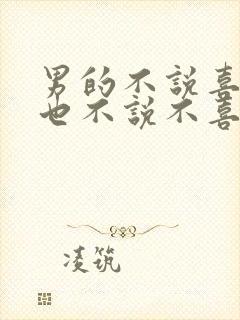 男的不说喜
也不说不喜
凌筑